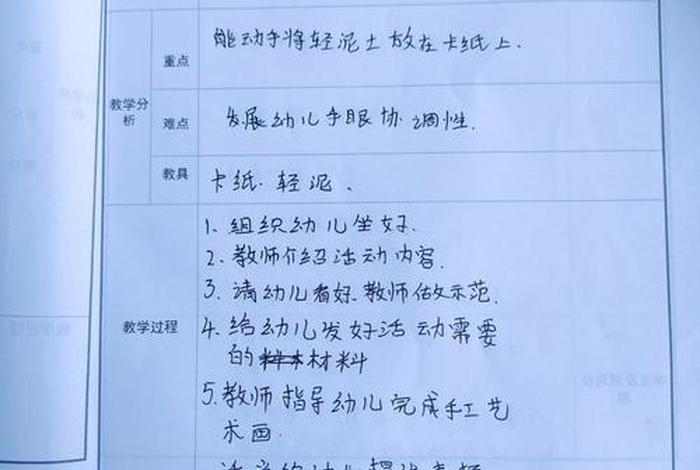 能动手将轻泥土放在卡纸上.
重点
教学分析
难点
发展幼儿手眼协调性.
教具
卡纸. 轻泥、
教学过程
1. 组织幼儿坐好.
2. 教师介绍活动内容.
3. 请幼儿看好教师做示范.
4. 给幼儿发好活动需要
的材料
5. 教师指导幼儿完成手工艺
术画.